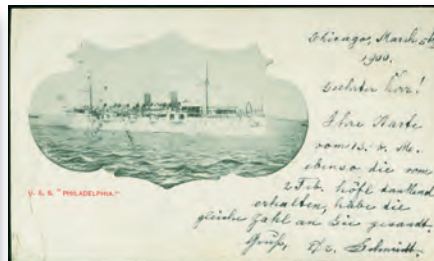 Chicago, March 5th
1900.
Geehrter Herr!
Ihre Karte
vom 13. v. M.
ebenso die vom
2 Feb. höfl dankend
erhalten, habe die
gleiche Zahl an Sie gesandt.
Gruß, Schmidt.
U. S. S. "PHILADELPHIA."